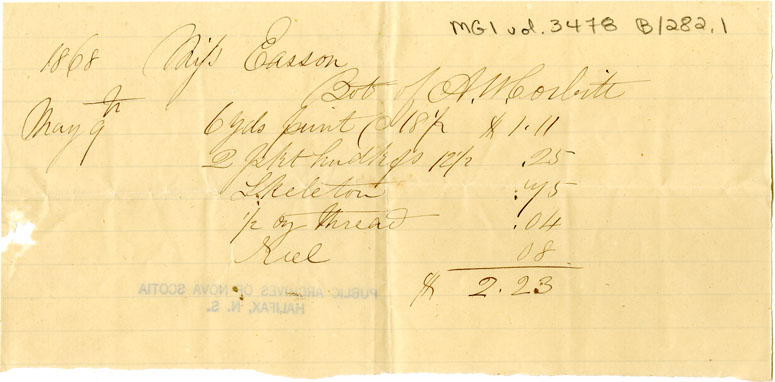 MG1 vol. 3478 B/282.1
1868 Miss Easson
Bot of A.W Corbitt
May 9th 6 yds print @ 18½ $1.11
2 pkt hndkfs 12½ .25
Skeleton .75
½ oz thread .04
08
$ 2.23
PUBLIC ARCHIVES OF NOVA SCOTIA
HALIFAX, N. S.